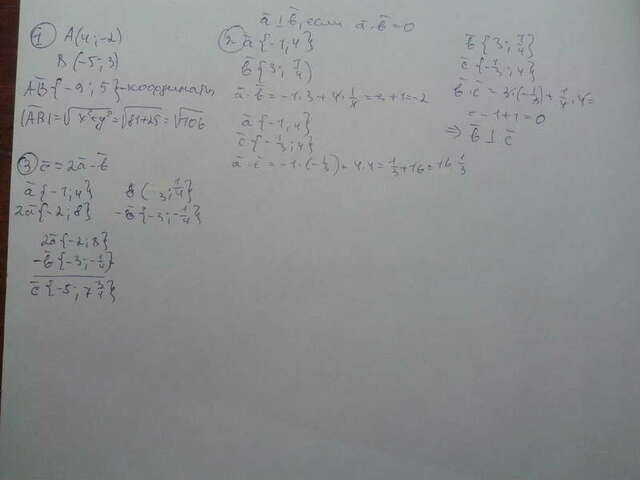 ① A(4; -2)
B(-5; 3)
AB̄{-9; 5} - координаты
|AB̄| = √x²+y² = √81+25 = √106
ā ⊥ b̄, если ā·b̄ = 0
② ā{-1; 4}
b̄{3; 1/4}
ā·b̄ = -1·3 + 4·1/4 = -3+1 = -2
ā{-1; 4}
c̄{-1/3; 4}
ā·c̄ = -1·(-1/3) + 4·4 = 1/3 + 16 = 16 1/3
b̄{3; 1/4}
c̄{-1/3; 4}
b̄·c̄ = 3·(-1/3) + 1/4·4 =
= -1+1 = 0
⇒ b̄ ⊥ c̄
③ c̄ = 2ā - b̄
ā{-1; 4} b̄(3; 1/4}
2ā{-2; 8} -b̄{-3; -1/4}
2ā{-2; 8}
-b̄{-3; -1/4}
c̄{-5; 7 3/4}